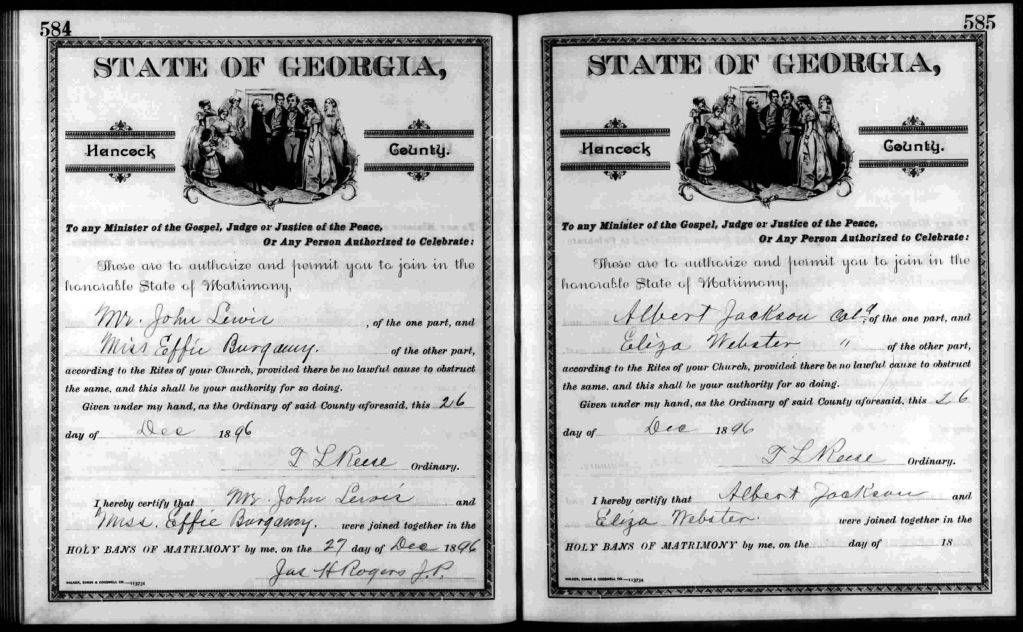 584
STATE OF GEORGIA,
Hancock County.
To any Minister of the Gospel, Judge or Justice of the Peace,
Or Any Person Authorized to Celebrate:
These are to authorize and permit you to join in the
honorable State of Matrimony,
Mr. John Lewis, of the one part, and
Miss Effie Burgamy. of the other part,
according to the Rites of your Church, provided there be no lawful cause to obstruct
the same, and this shall be your authority for so doing.
Given under my hand, as the Ordinary of said County aforesaid, this 26
day of Dec 1896
T L Reese Ordinary.
I hereby certify that Mr. John Lewis and
Miss. Effie Burgamy. were joined together in the
HOLY BANS OF MATRIMONY by me, on the 27 day of Dec 1896
Jas H Rogers J.P.
WALKER, EVANS & COGSWELL CO.—113724
585
STATE OF GEORGIA,
Hancock County.
To any Minister of the Gospel, Judge or Justice of the Peace,
Or Any Person Authorized to Celebrate:
These are to authorize and permit you to join in the
honorable State of Matrimony,
Albert Jackson Cold, of the one part, and
Eliza Webster " of the other part,
according to the Rites of your Church, provided there be no lawful cause to obstruct
the same, and this shall be your authority for so doing.
Given under my hand, as the Ordinary of said County aforesaid, this 26
day of Dec 1896
T L Reese Ordinary.
I hereby certify that Albert Jackson and
Eliza Webster. were joined together in the
HOLY BANS OF MATRIMONY by me, on the day of 18
WALKER, EVANS & COGSWELL CO.—113724